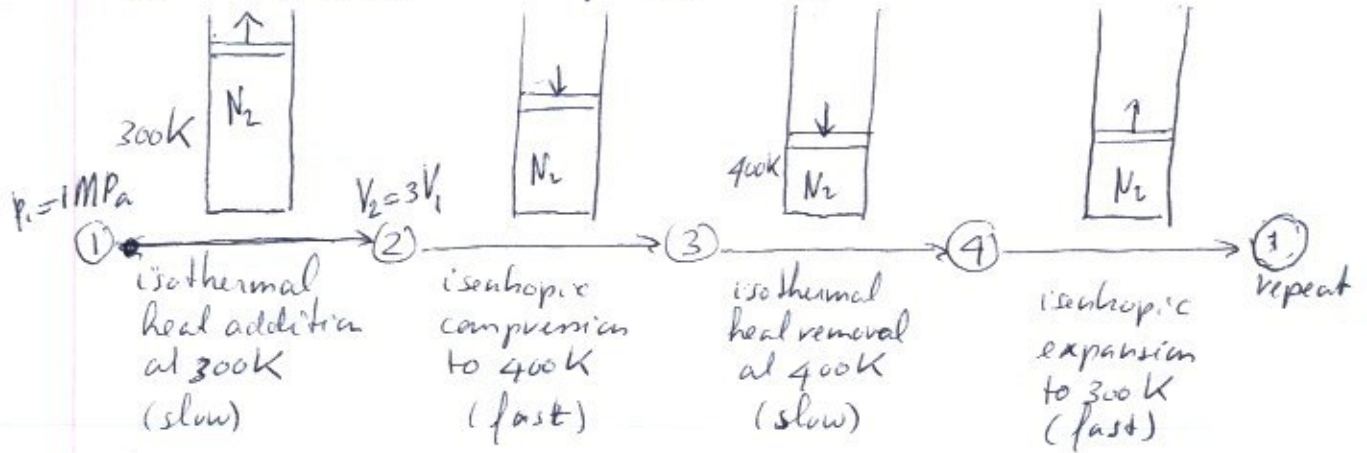 N₂
300K
N₂
400K
N₂
N₂
p₁=1MPa
V₂=3V₁
① ② ③ ④ ①
repeat
isothermal
heat addition
at 300K
(slow)
isentropic
compression
to 400K
(fast)
isothermal
heat removal
at 400K
(slow)
isentropic
expansion
to 300K
(fast)